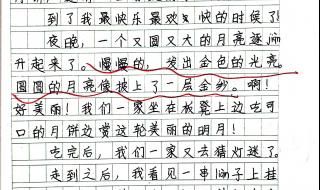 到了我最快乐最欢快的时候了!
夜晚,一个又圆又大的月亮逐渐
升起来了。慢慢的,发出金色的光亮。
圆圆的月亮像披上了一层金纱。啊!
好美丽!我们一家坐在板凳上边吃可
口的月饼边赏这轮美丽的明月!
吃完后,我们一家又去猜灯迷了。
走到之后,我看见一串 子上挂